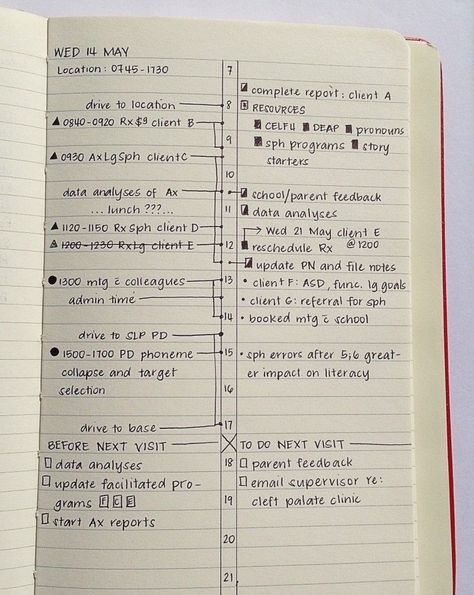 WED 14 MAY
Location: 0745-1730
drive to location
▲ 0840-0920 Rx $9 client B
▲ 0930 Ax Lg Sph client C
data analyses of Ax
... lunch ??? ...
▲ 1120-1150 Rx Sph client D
▲ 1200-1230 Rx Lg client E
● 1300 mtg c̄ colleagues
admin time
drive to SLP PD
● 1500-1700 PD phoneme
collapse and target
selection
drive to base
7
8
9
10
11
12
13
14
15
16
17
18
19
20
21
complete report: client A
RESOURCES
CELF4 DEAP pronouns
sph programs story
starters
school/parent feedback
data analyses
→ Wed 21 May client E
reschedule Rx @1200
update PN and file notes
• client F: ASD, func. lg goals
• client G: referral for sph
• booked mtg c̄ school
• sph errors after 5;6 great-
er impact on literacy
BEFORE NEXT VISIT
□ data analyses
□ update facilitated pro-
grams F C E
□ start Ax reports
TO DO NEXT VISIT
□ parent feedback
□ email supervisor re:
cleft palate clinic